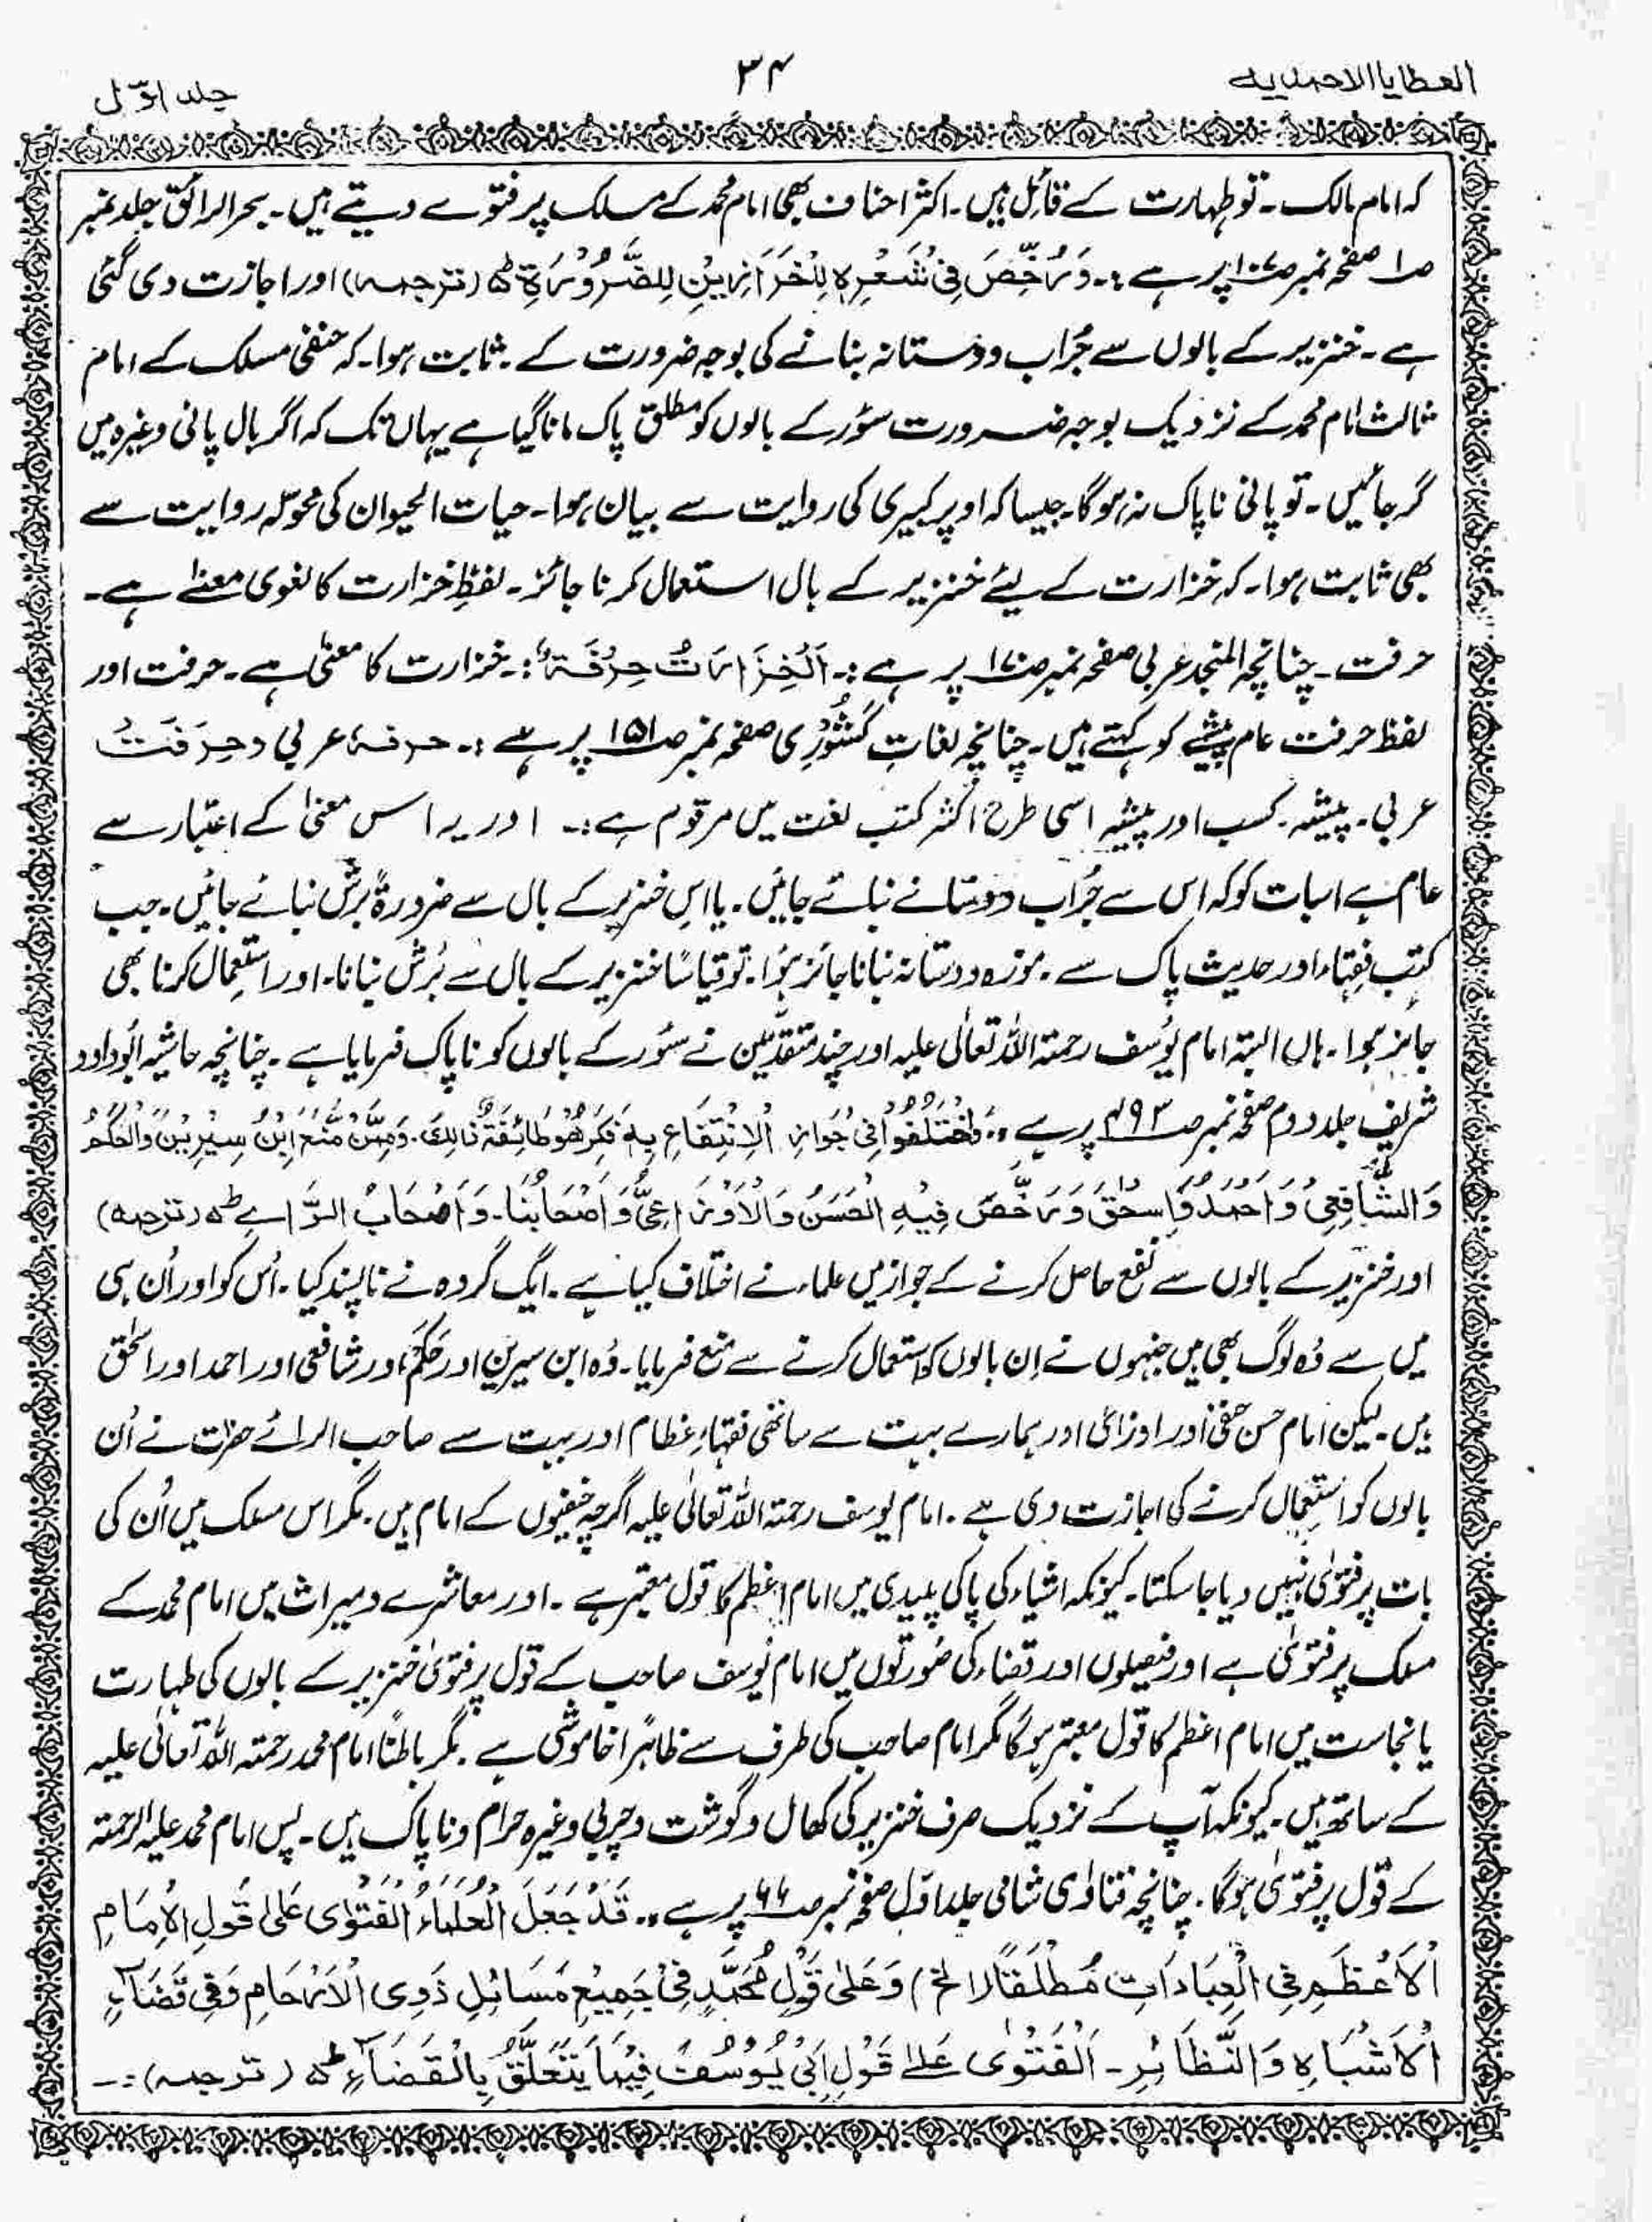 العطایا الاحمدیہ
۳۴
جلد اوّل
کہ امام مالک۔ تو طہارت کے قائل ہیں۔ اکثر احناف بھی امام محمد کے مسلک پر فتوے دیتے ہیں۔ بحر الرائق جلد نمبر
صـ۱ صفحہ نمبر صـ۱۰۷ پر ہے :۔ وَرَخِّصَ فِیْ شَعْرِہٖ لِلْخَرَّازِیْنَ لِلضَّرُوْرَۃِ ؕ (ترجمہ) اور اجازت دی گئی
ہے۔ خنزیر کے بالوں سے جُراب و دوستانہ بنانے کی بوجہ ضرورت کے۔ ثابت ہوا۔ کہ حنفی مسلک کے امام
ثالث امام محمد کے نزدیک بوجہ ضرورت سؤر کے بالوں کو مطلق پاک مانا گیا ہے یہاں تک کہ اگر بال پانی وغیرہ میں
گر جائیں۔ تو پانی ناپاک نہ ہوگا۔ جیسا کہ اوپر کبیری کی روایت سے بیان ہوا۔ حیات الحیوان کی محولہ روایت سے
بھی ثابت ہوا۔ کہ خزارت کے لیئے خنزیر کے بال استعمال کرنا جائز۔ لفظِ خزارت کا لغوی معنےٰ ہے۔
حرفت۔ چنانچہ المنجد عربی صفحہ نمبر صـ۱۷۰ پر ہے :۔ اَلْخِزَارَاتُ حِرْفَۃٌ :۔ خزارت کا معنیٰ ہے۔ حرفت اور
لفظ حرفت عام پیشے کو کہتے ہیں۔ چنانچہ لغاتِ کشوری صفحہ نمبر صـ۱۵۱ پر ہے :۔ حرفۂ عربی و حِرَفَتُ
عربی۔ پیشہ۔ کسب اور پیشہ اسی طرح اکثر کتب لغت میں مرقوم ہے :۔ اور یہ اس معنیٰ کے اعتبار سے
عام ہے اسبات کو کہ اس سے جُراب دوستانے بنائے جائیں۔ یا اس خنزیر کے بال سے ضرورۃً برش بنائے جائیں۔ جب
کتب فقہاء اور حدیث پاک سے۔ موزہ و دستانہ بنانا جائز ہوا۔ تو قیاسًا خنزیر کے بال سے بُرش بنانا۔ اور استعمال کرنا بھی
جائز ہوا۔ ہاں البتہ امام یُوسف رحمۃ اللہ تعالیٰ علیہ اور چند متقدّمین نے سُور کے بالوں کو ناپاک فرمایا ہے۔ چنانچہ حاشیہ ابُوداود
شریف جلد دوم صفحہ نمبر صـ۴۹۳ پر ہے :۔ وَاخْتَلَفُوْا فِیْ جَوَازِ الْاِنْتِفَاعِ بِہٖ فَکَرِھَہُ طَائِفَۃٌ ذَالِکَ۔ وَمِمَّنْ مَنَعَ اِبْنُ سِیْرِیْنَ وَالْحَکَمُ
وَالشَّافِعِیُ وَاَحْمَدُ وَاِسْحٰقَ وَرَخَّصَ فِیْہِ الْحَسَنُ وَالْاَوْزَاعِیُّ وَاَصْحَابُنَا۔ وَاَصْحَابُ الرَّاےِ ؕ (ترجمہ)
اور خنزیر کے بالوں سے نفع حاصل کرنے کے جواز میں علماء نے اختلاف کیا ہے۔ ایک گروہ نے ناپسند کیا۔ اُس کو اور اُن ہی
میں سے وُہ لوگ بھی ہیں جنہوں نے اِن بالوں کو استعمال کرنے سے منع فرمایا۔ وُہ ابن سیرین اور حَکَم اور شافعی اور احمد اور اسحٰق
ہیں۔ لیکن امام حسن حنفی اور اوزاعی اور ہمارے بہت سے ساتھی فقہاءِ عظام اور بہت سے صاحب الرائے حضرت نے اُن
بالوں کو استعمال کرنے کی اجازت دی ہے۔ امام یوسف رحمتہ اللہ تعالیٰ علیہ اگرچہ حنفیوں کے امام ہیں۔ مگر اس مسلک میں اُن کی
بات پر فتویٰ نہیں دیا جا سکتا۔ کیونکہ اشیاء کی پاکی پلیدی میں امام اعظم کا قول معتبر ہے۔ اور معاشرے و میراث میں امام محمد کے
مسلک پر فتویٰ ہے اور فیصلوں اور قضاء کی صُورتوں میں امام یُوسف صاحب کے قول پر فتویٰ خنزیر کے بالوں کی طہارت
یا نجاست میں امام اعظم کا قول معتبر ہوگا مگر امام صاحب کی طرف سے ظاہرًا خاموشی ہے۔ مگر باطنًا امام محمد رحمتہ اللہ تعالیٰ علیہ
کے ساتھ ہیں۔ کیونکہ آپ کے نزدیک صرف خنزیر کی کھال و گوشت و چربی وغیرہ حرام و ناپاک ہیں۔ پس امام محمد علیہ الرحمتہ
کے قول پر فتویٰ ہوگا۔ چنانچہ فتاوٰی شامی جلد اوّل صفحہ نمبر صـ۶۶ پر ہے :۔ قَدْ جَعَلَ الْعُلَمَاءُ الْفَتْوٰی عَلٰی قَوْلِ الْاِمَامِ
الْاَعْظَمِ فِی الْعِبَادَاتِ مُطْلَقًا (الخ) وَعَلٰی قَوْلِ مُحَمَّدٍ فِیْ جَمِیْعِ مَسَائِلِ ذَوِی الْاَرْحَامِ وَفِیْ قَضَآءِ
الْاَشْبَاہِ وَالنَّظَائِرِ۔ اَلْفَتْوٰی عَلےٰ قَوْلِ اَبِیْ یُوْسُفَ فِیْمَا یَتَعَلَّقُ بِالْقَضَآءِ ؕ (ترجمہ) :۔